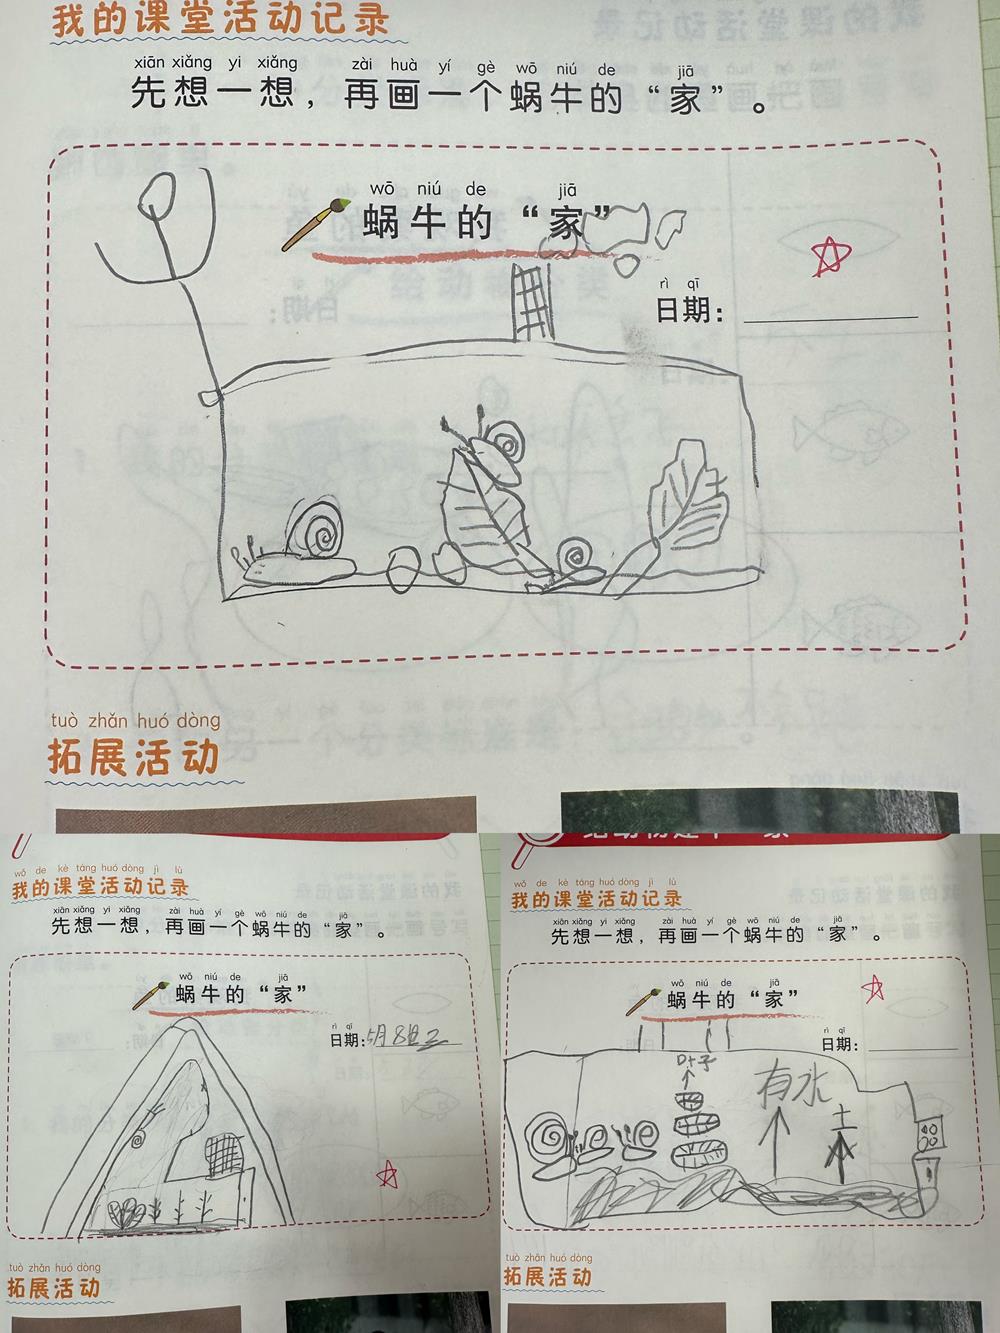 我的课堂活动记录
xiān xiǎng yi xiǎng zài huà yí gè wō niú de jiā
先想一想，再画一个蜗牛的“家”。
wō niú de jiā
蜗牛的“家”
rì qī
日期：
tuò zhǎn huó dòng
拓展活动
wǒ de kè táng huó dòng jì lù
我的课堂活动记录
xiān xiǎng yi xiǎng zài huà yí gè wō niú de jiā
先想一想，再画一个蜗牛的“家”。
wō niú de jiā
蜗牛的“家”
rì qī
日期：5月8日
tuò zhǎn huó dòng
拓展活动
wǒ de kè táng huó dòng jì lù
我的课堂活动记录
xiān xiǎng yi xiǎng zài huà yí gè wō niú de jiā
先想一想，再画一个蜗牛的“家”。
wō niú de jiā
蜗牛的“家”
rì qī
日期：
叶子
有水
土
tuò zhǎn huó dòng
拓展活动